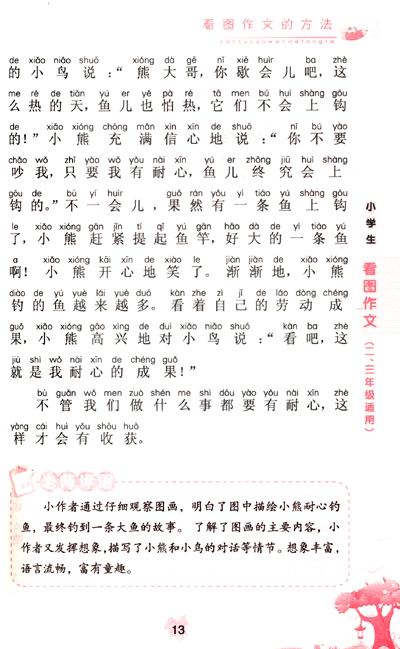 看图作文的方法
kantuzuowendefangfa
de xiǎo niǎo shuō xióng dà gē nǐ xiē huì er ba zhè
的小鸟说：“熊大哥，你歇会儿吧，这
me rè de tiān yú er yě pà rè tā men bú huì shàng gōu
么热的天，鱼儿也怕热，它们不会上钩
de xiǎo xióng chōng mǎn xìn xīn de shuō nǐ bú yào
的！”小熊充满信心地说：“你不要
chǎo wǒ zhǐ yào wǒ yǒu nài xīn yú er zhōng jiū huì shàng
吵我，只要我有耐心，鱼儿终究会上
gōu de bù yí huìr guǒ rán yǒu yì tiáo yú shàng gōu
钩的。”不一会儿，果然有一条鱼上钩
le xiǎo xióng gǎn jǐn tí qǐ yú gān hǎo dà de yì tiáo yú
了，小熊赶紧提起鱼竿，好大的一条鱼
a xiǎo xióng kāi xīn de xiào le jiàn jiàn de xiǎo xióng
啊！小熊开心地笑了。渐渐地，小熊
diào de yú yuè lái yuè duō kàn zhe zì jǐ de láo dòng chéng
钓的鱼越来越多。看着自己的劳动成
guǒ xiǎo xióng gāo xìng de duì xiǎo niǎo shuō kàn ba zhè
果，小熊高兴地对小鸟说：“看吧，这
jiù shì wǒ nài xīn de chéng guǒ
就是我耐心的成果！”
bù guǎn wǒ men zuò shén me shì dōu yào yǒu nài xīn zhè
不管我们做什么事都要有耐心，这
yàng cái huì yǒu shōu huò
样才会有收获。
小学生
看图作文
（二、三年级适用）
小作者通过仔细观察图画，明白了图中描绘小熊耐心钓
鱼，最终钓到一条大鱼的故事。了解了图画的主要内容，小
作者又发挥想象，描写了小熊和小鸟的对话等情节。想象丰富，
语言流畅，富有童趣。
13